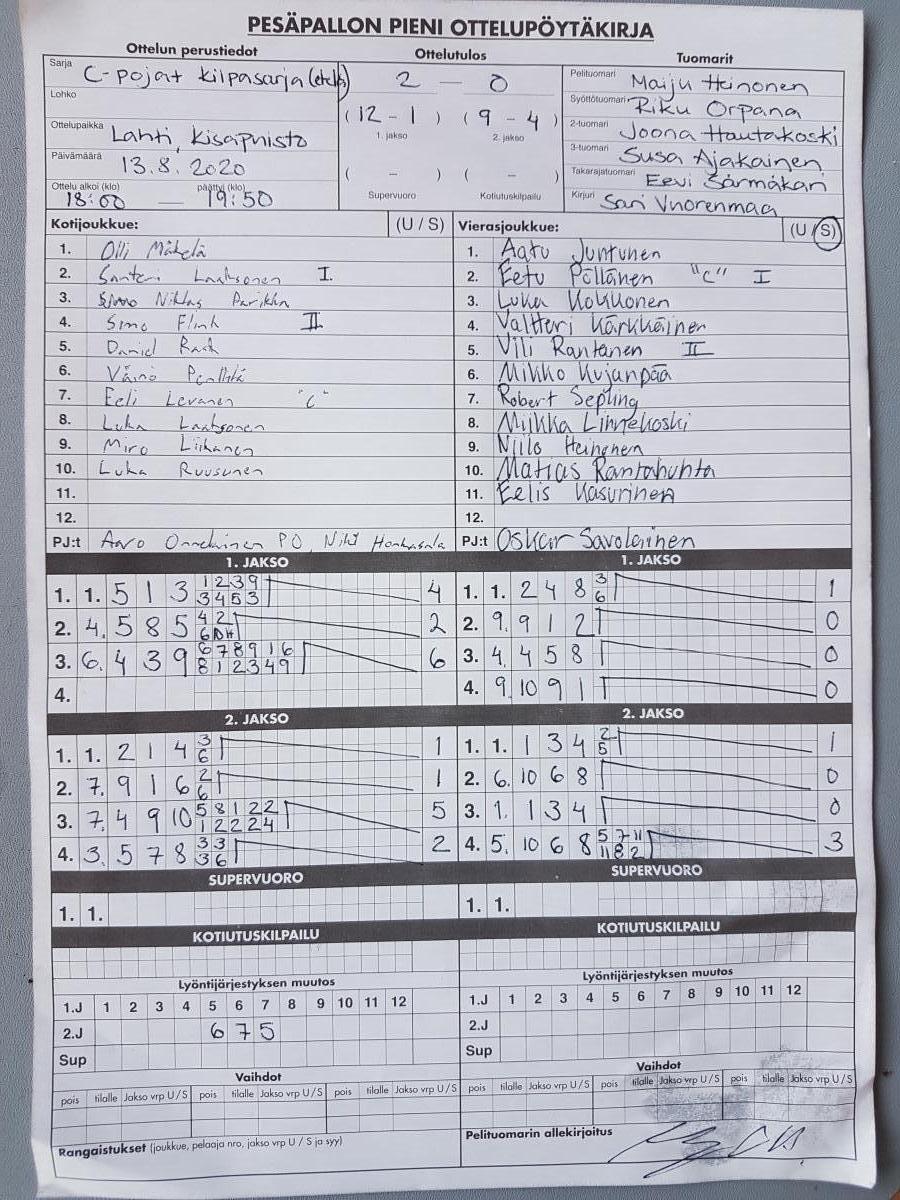 PESÄPALLON PIENI OTTELUPÖYTÄKIRJA
Ottelun perustiedot
Sarja C-pojat kilpasarja (etelä)
Lohko
Ottelupaikka Lahti, Kisapuisto
Päivämäärä 13.8.2020
Ottelu alkoi (klo) päättyi (klo)
18:00 — 19:50
Ottelutulos
2 — 0
(12 - 1) (9 - 4)
1. jakso 2. jakso
( - ) ( - )
Supervuoro Kotiutuskilpailu
Tuomarit
Pelituomari Maiju Heinonen
Syöttötuomari Riku Orpana
2-tuomari Joona Hautakoski
3-tuomari Susa Ajakainen
Takarajatuomari Eevi Särmäkari
Kirjuri Sari Vuorenmaa
Kotijoukkue: (U / S)
1. Olli Mäkelä
2. Santeri Laaksonen I.
3. Niklas Parikka
4. Simo Flink II
5. Daniel
6. Väinö
7. Eeli Levanen "C"
8. Luka Laaksonen
9. Miro Liikanen
10. Luka Ruusunen
11.
12.
PJ:t Aaro Onnelainen PO, Niki Honkasalo
Vierasjoukkue: (U / S)
1. Aatu Juntunen
2. Eetu Pöllänen "C" I
3. Luka Kokkonen
4. Valtteri Kärkkäinen
5. Vili Rantanen II
6. Mikko Kujanpää
7. Robert Sepling
8. Miikka Linnekoski
9. Niilo Heinonen
10. Matias Rantahuhta
11. Eelis Kasurinen
12.
PJ:t Oskar Savolainen
1. JAKSO
1. 1. 5 1 3 1 2 3 9 4
3 4 5 3
2. 4. 5 8 5 4 2 2
6
3. 6. 4 3 9 6 7 8 9 1 6 6
8 1 2 3 4 9
4.
1. JAKSO
1. 1. 2 4 8 3 1
6
2. 9. 9 1 2 0
3. 4. 4 5 8 0
4. 9. 10 9 1 0
2. JAKSO
1. 1. 2 1 4 3 1
6
2. 7. 9 1 6 2 1
6
3. 7. 4 9 10 5 8 1 2 2 5
1 2 2 2 4
4. 3. 5 7 8 3 3 2
3 6
2. JAKSO
1. 1. 1 3 4 2 1
5
2. 6. 10 6 8 0
3. 1. 1 3 4 0
4. 5. 10 6 8 5 7 11 3
11 8 2
SUPERVUORO
1. 1.
SUPERVUORO
1. 1.
KOTIUTUSKILPAILU
KOTIUTUSKILPAILU
Lyöntijärjestyksen muutos
1.J 1 2 3 4 5 6 7 8 9 10 11 12
2.J 6 7 5
Sup
Lyöntijärjestyksen muutos
1.J 1 2 3 4 5 6 7 8 9 10 11 12
2.J
Sup
Vaihdot
pois tilalle Jakso vrp U / S pois tilalle Jakso vrp U / S pois tilalle Jakso vrp U / S
Vaihdot
pois tilalle Jakso vrp U / S pois tilalle Jakso vrp U / S pois tilalle Jakso vrp U / S
Rangaistukset (joukkue, pelaaja nro, jakso vrp U / S ja syy)
Pelituomarin allekirjoitus